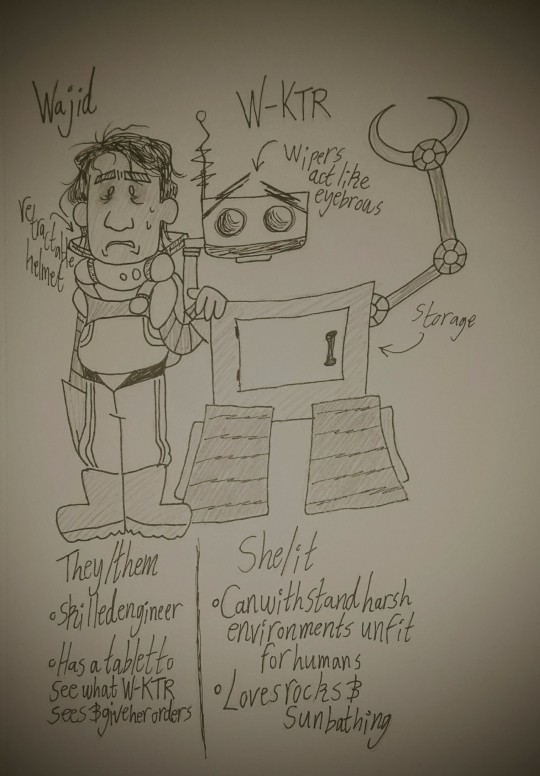 Wajid
W-KTR
Wipers
act like
eyebrows
retractable
helmet
Storage
They/them
Skilled engineer
Has a tablet to
see what W-KTR
sees & give her orders
She/it
Can withstand harsh
environments unfit
for humans
Loves rocks &
Sunbathing